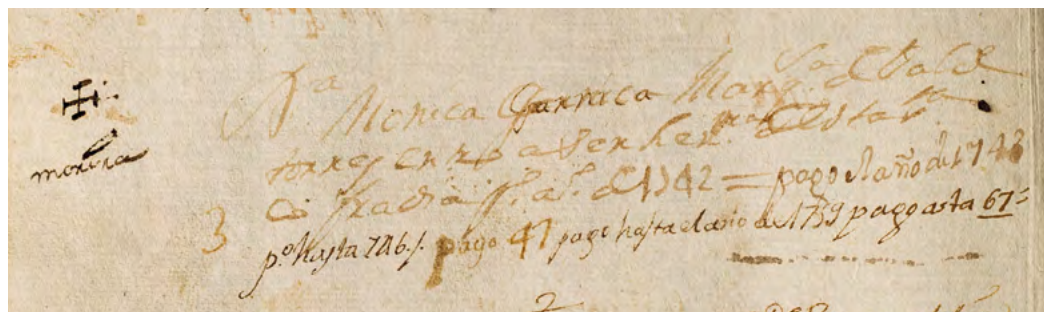 Dª Monica Garnica Marqˢᵃ de Valde
torres enzo a ser herᵐⁿᵃ de Estaᵃ
Cofradia aº de 1742 = pago el año de 1743
morena
3
pº hasta 746. pago 47 pago hasta el año de 1759 pago asta 67
2